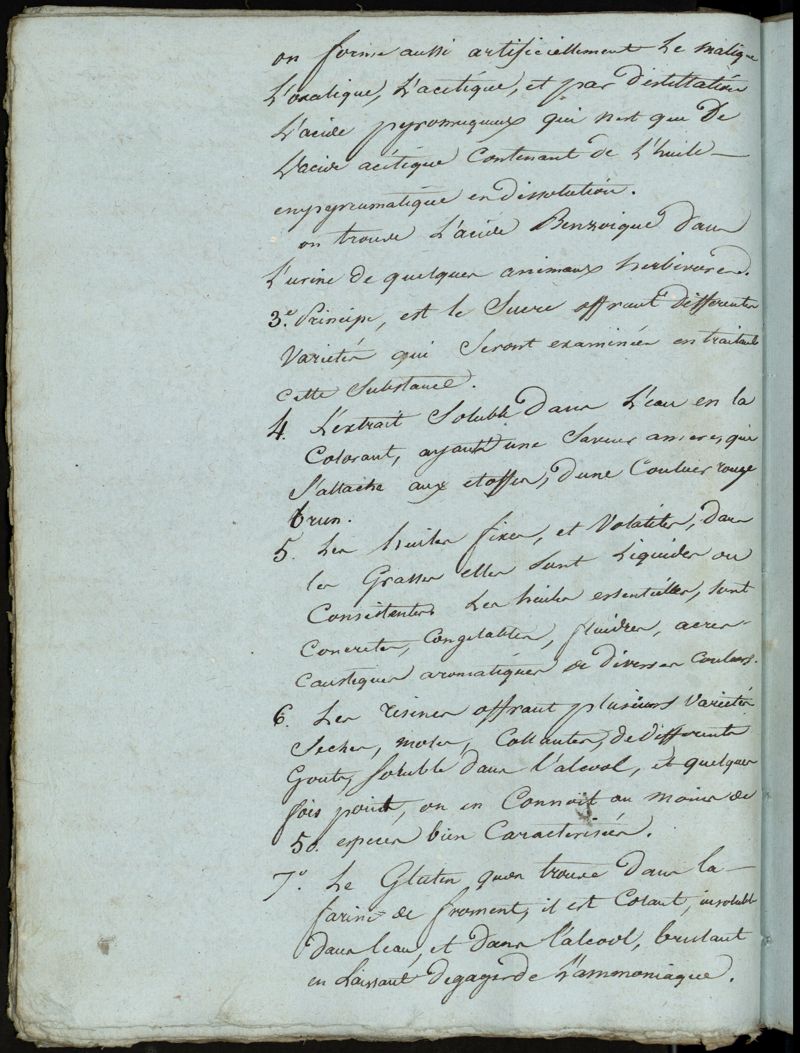 on forme aussi artificiellement le malique
L'oxalique, L'acétique, et par distillation
L'acide pyromuqueux qui n'est que De
L'acide acétique Contenant de L'huile —
empyreumatique en dissolution.
on trouve L'acide Benzoique dans
L'urine de quelques animaux herbivores.
3.º Principe, est le Sucre offrant differentes
Varietés qui Seront examinées en traitant
cette Substance.
4. L'extrait Soluble Dans L'eau en la
Colorant, ayant une Saveur amere, qui
S'attache aux etoffes, d'une Couleur rouge
brun.
5. Les huiles fixes, et Volatiles, dans
les Grasses elles sont Liquides ou
Consistentes Les huiles essentielles, sont
Concretes, Congelables, fluides, acres
Caustiques aromatiques de diverses Couleurs.
6. Les résines offrant plusieurs Varietés
Seches, moles, Collantes, de differents
Gouts, Soluble Dans l'alcool, et quelques
fois point, on en Connoit au moins de
50. especes bien Caracterisées.
7º. Le Gluten qu'on trouve Dans la —
farine de froment, il est Colant, insoluble
Dans l'eau, et Dans l'alcool, brulant
en Laissant Degager de L'ammoniaque.